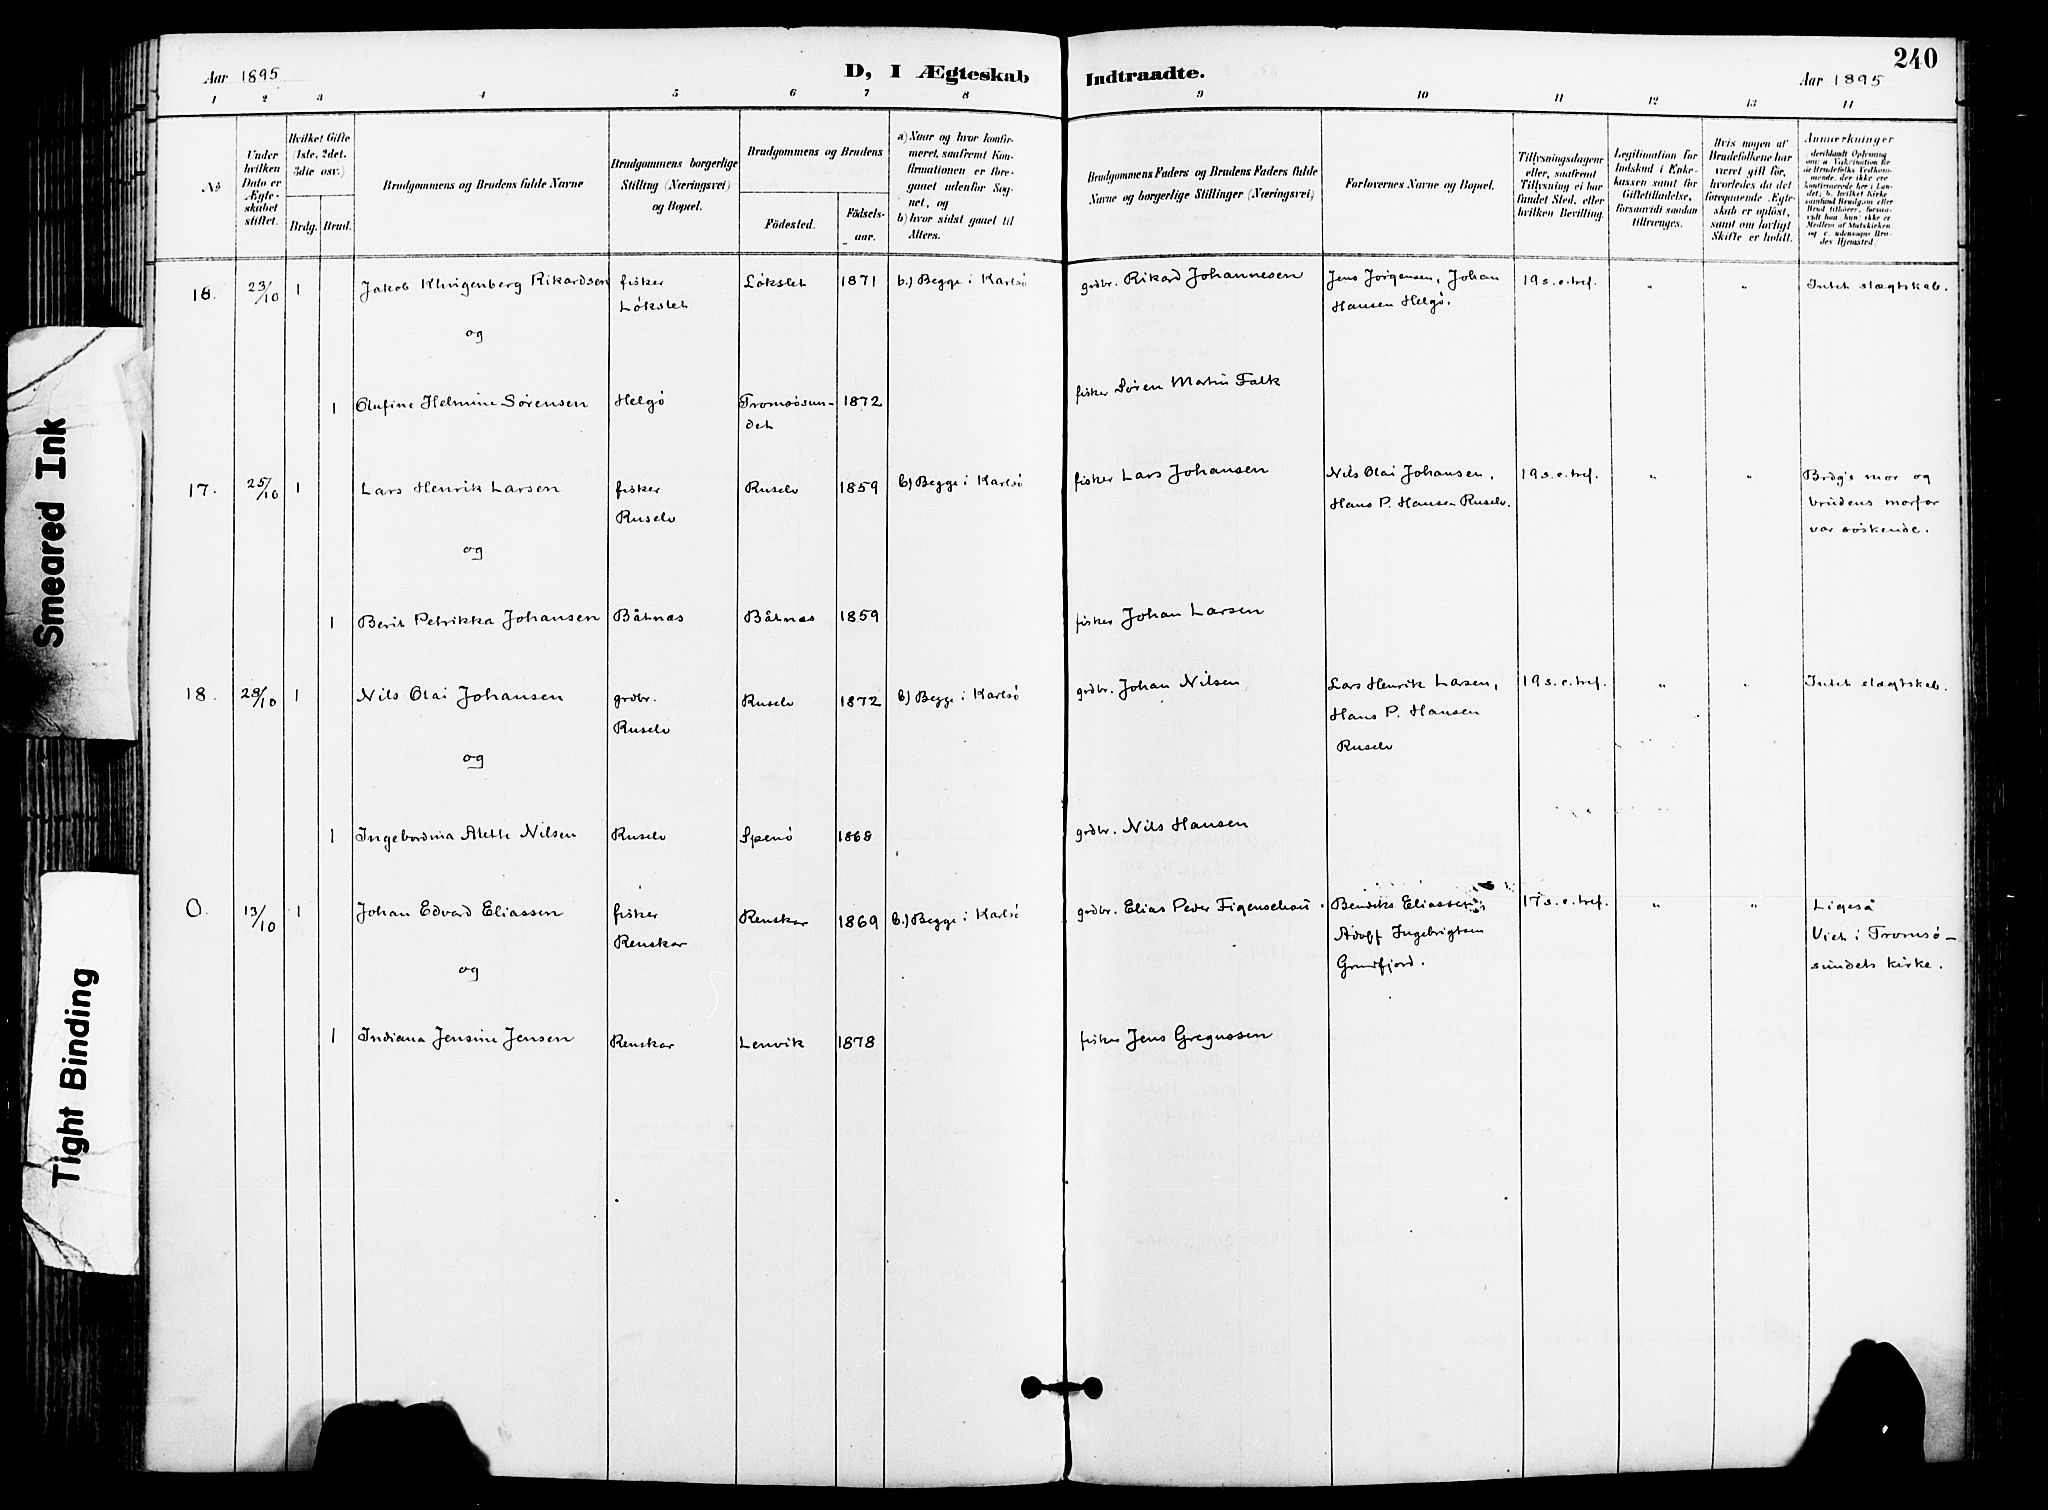 240
Aar 1895
D, I Ægteskab
Indtraadte.
Aar 1895
1 2 3 4 5 6 7 8 9 10 11 12 13 14
No
Under hvilken Dato er Ægteskabet stiftet.
Hvilket Gifte (1ste, 2det, 3die osv.)
Brdg. Brud.
Brudgommens og Brudens fulde Navne
Brudgommens borgerlige Stilling (Næringsvei) og Bopæl.
Brudgommens og Brudens
Födested.
Födselsaar.
a) Naar og hvor konfirmeret, saafremt Konfirmationen er foregaaet udenfor Sognet, og
b) hvor sidst gaaet til Alters.
Brudgommens Faders og Brudens Faders fulde Navne og borgerlige Stillinger (Næringsvei)
Forlovernes Navne og Bopæl.
Tillysningsdagene eller, saafremt Tillysning ei har fundet Sted, efter hvilken Bevilling.
Legitimation for Indskud i Enkekassen samt for Giftetilladelse, forsaavidt saadan tiltrænges.
Hvis nogen af Brudefolkene har været gift før, hvorledes da det foregaaende Ægteskab er opløst, samt om lovligt Skifte er holdt.
Anmærkninger
18. 23/10 1 Jakob Klingenberg Rikardsen fisker Løkslet 1871 b.) Begge i Karlsö grdbr. Rikard Johannesen Jens Jörgensen, Johan 19 s. e. tref. " " Intet slægtskab.
Lökslet Hansen Helgö.
og
1 Olufine Helmine Sørensen Helgö Tromsösun- 1872 fisker Sören Martin Falk
det
17. 25/10 1 Lars Henrik Larsen fisker Ruselv 1859 b) Begge i Karlsö fisker Lars Johansen Nils Olai Johansen, 19 s. e. tref. " " Brdg's mor og
Ruselv Hans P. Hansen Ruselv. brudens morfar
var söskende.
og
1 Berit Petrikka Johansen Båtnæs Båtnæs 1859 fisker Johan Larsen
18. 28/10 1 Nils Olai Johansen grdbr. Ruselv 1872 b) Begge i Karlsö grdbr. Johan Nilsen Lars Henrik Larsen, 19 s. e. tref. " " Intet slægtskab.
Ruselv Hans P. Hansen
Ruselv
og
1 Ingebordma Alette Nilsen Ruselv Spenö 1868 grdbr. Nils Hansen
O. 13/10 1 Johan Edvard Eliassen fisker Renskar 1869 b.) Begge i Karlsö grdbr. Elias Peder Figenschou. Bendiks Eliassen, 17 s. e. tref. " " Ligeså
Renskar Adolf Ingebrigtsen Viet i Tromsö-
og Grunfjord. sundets kirke.
1 Indiana Jensine Jensen Renskar Lenvik 1878 fisker Jens Gregussen
Smeared Ink
Tight Binding